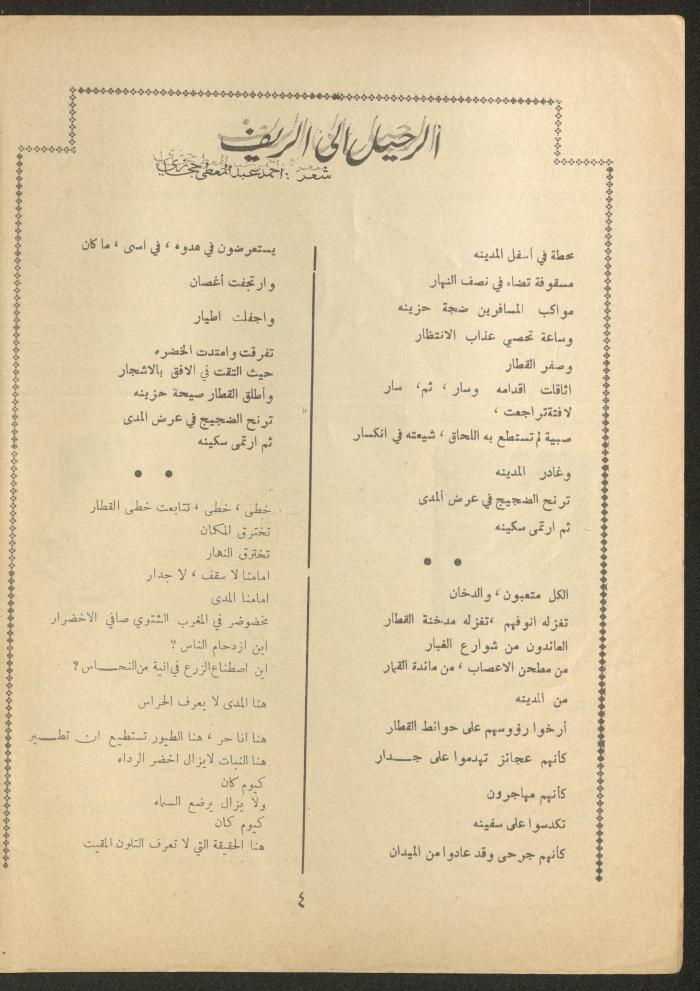 الرحيل الى الريف
شعر : احمد عبد المعطي حجازي
محطة في أسفل المدينه
مسقوفة تضاء في نصف النهار
مواكب المسافرين ضجة حزينه
وساعة تحصي عذاب الانتظار
وصفر القطار
اثاقلت اقدامه وسار ، ثم، سار
لافتة تراجعت ،
صبية لم تستطع به اللحاق ، شيعته في انكسار
وغادر المدينه
ترنح الضجيج في عرض المدى
ثم ارتمى سكينه
● ●
الكل متعبون ، والدخان
تغزله انوفهم ، تغزله مدخنة القطار
العائدون من شوارع الغبار
من مطحن الاعصاب ، من مائدة القمار
من المدينه
أرخوا رؤوسهم على حوائط القطار
كأنهم عجائز تهدموا على جــدار
كأنهم مهاجرون
تكدسوا على سفينه
كأنهم جرحى وقد عادوا من الميدان
يستعرضون في هدوء ، في اسى ، ما كان
وارتجفت أغصان
واجفلت اطيار
تفرقت وامتدت الخضره
حيث التقت في الافق بالاشجار
وأطلق القطار صيحة حزينه
ترنح الضجيج في عرض المدى
ثم ارتمى سكينه
● ●
خطى ، خطى ، تتابعت خطى القطار
تخترق المكان
تخترق النهار
امامنا لا سقف ، لا جدار
امامنا المدى
مخضوضر في المغرب الشتوي صافي الاخضرار
اين ازدحام الناس ؟
اين اصطناع الزرع في انية من النحــاس ؟
هنا المدى لا يعرف الحراس
هنا انا حر ، هنا الطيور تستطيع ان تطــير
هنا النبات لايزال اخضر الرداء
كيوم كان
ولا يزال يرضع السماء
كيوم كان
هنا الحقيقة التي لا تعرف التلون المقيت
٤